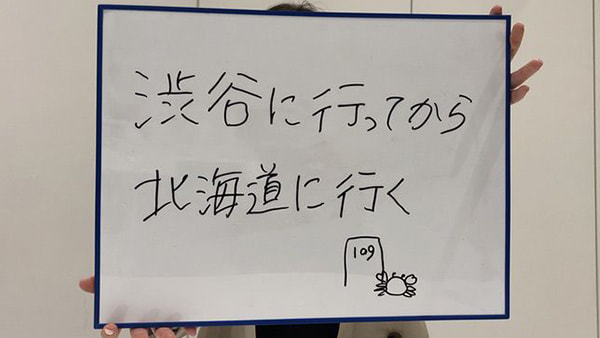 渋谷に行ってから
北海道に行く
109